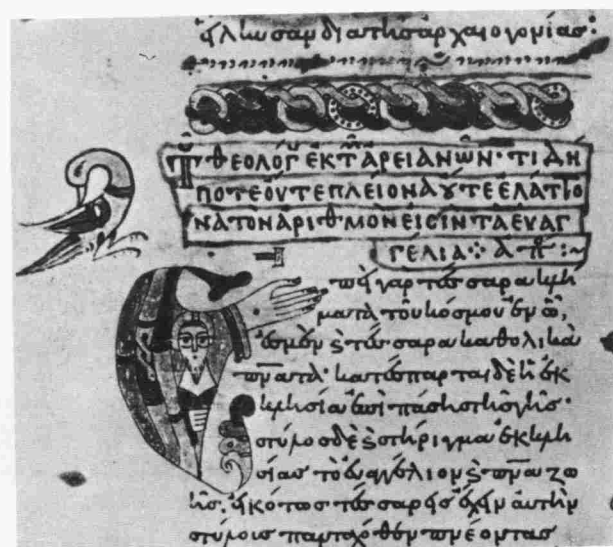 διατησαρχαιογονίας:
ΘΕΟΛΟΓ ἐΚ Τ ΑΡΕΙΑΝῶΝ· ΤΙ ΔΗ
ΠΟΤΕ ΟΥΤΕ ΠΛΕΙΟΝΑ ΟΥΤΕ ΕΛΑΤΤΟ
ΝΑ ΤΟΝ ΑΡΙΘΜΟΝ ΕΙΣΙΝ ΤΑ ΕΥΑΓ
ΓΕΛΙΑ
πὴ γὰρ τέσσαρα κλή
ματὰ τοῦ κόσμου ἐν ᾧ,
ἐσμὲν ϗ τέσσαρα καθολικὰ
πνατα· κατέσπαρται δὲ ἡ ἐκ
κλησία ἐπὶ πάσης τῆς γῆς·
στύλος δὲ ϗ στήριγμα ἐκκλη
σίας τὸ εὐαγγέλιον ϗ πνα ζω
ῆς. ἠκότως τέσσαρες ἔχην αὐτὴν
στύλοις πανταχόθεν πνέοντας